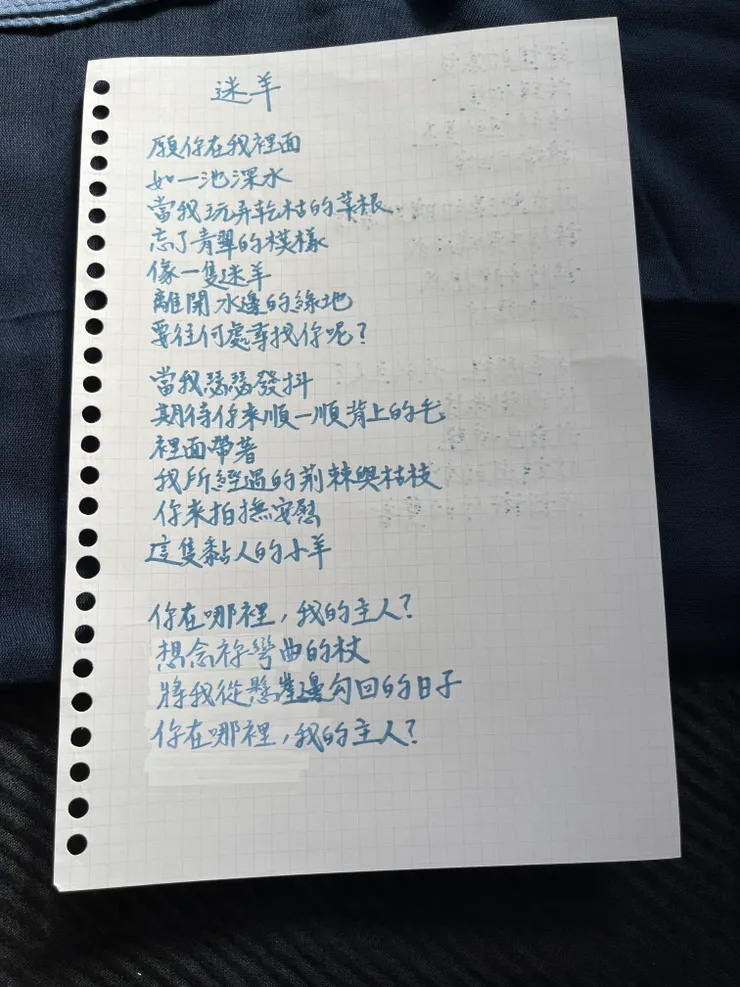 迷羊
願你在我裡面
如一池深水
當我玩弄乾枯的草根
忘了青翠的模樣
像一隻迷羊
離開水邊的綠地
要往何處尋找你呢？
當我瑟瑟發抖
期待你來順一順背上的毛
裡面帶著
我所經過的荊棘與枯枝
你來拍撫安慰
這隻黏人的小羊
你在哪裡，我的主人？
想念祢彎曲的杖
將我從懸崖邊勾回的日子
你在哪裡，我的主人？